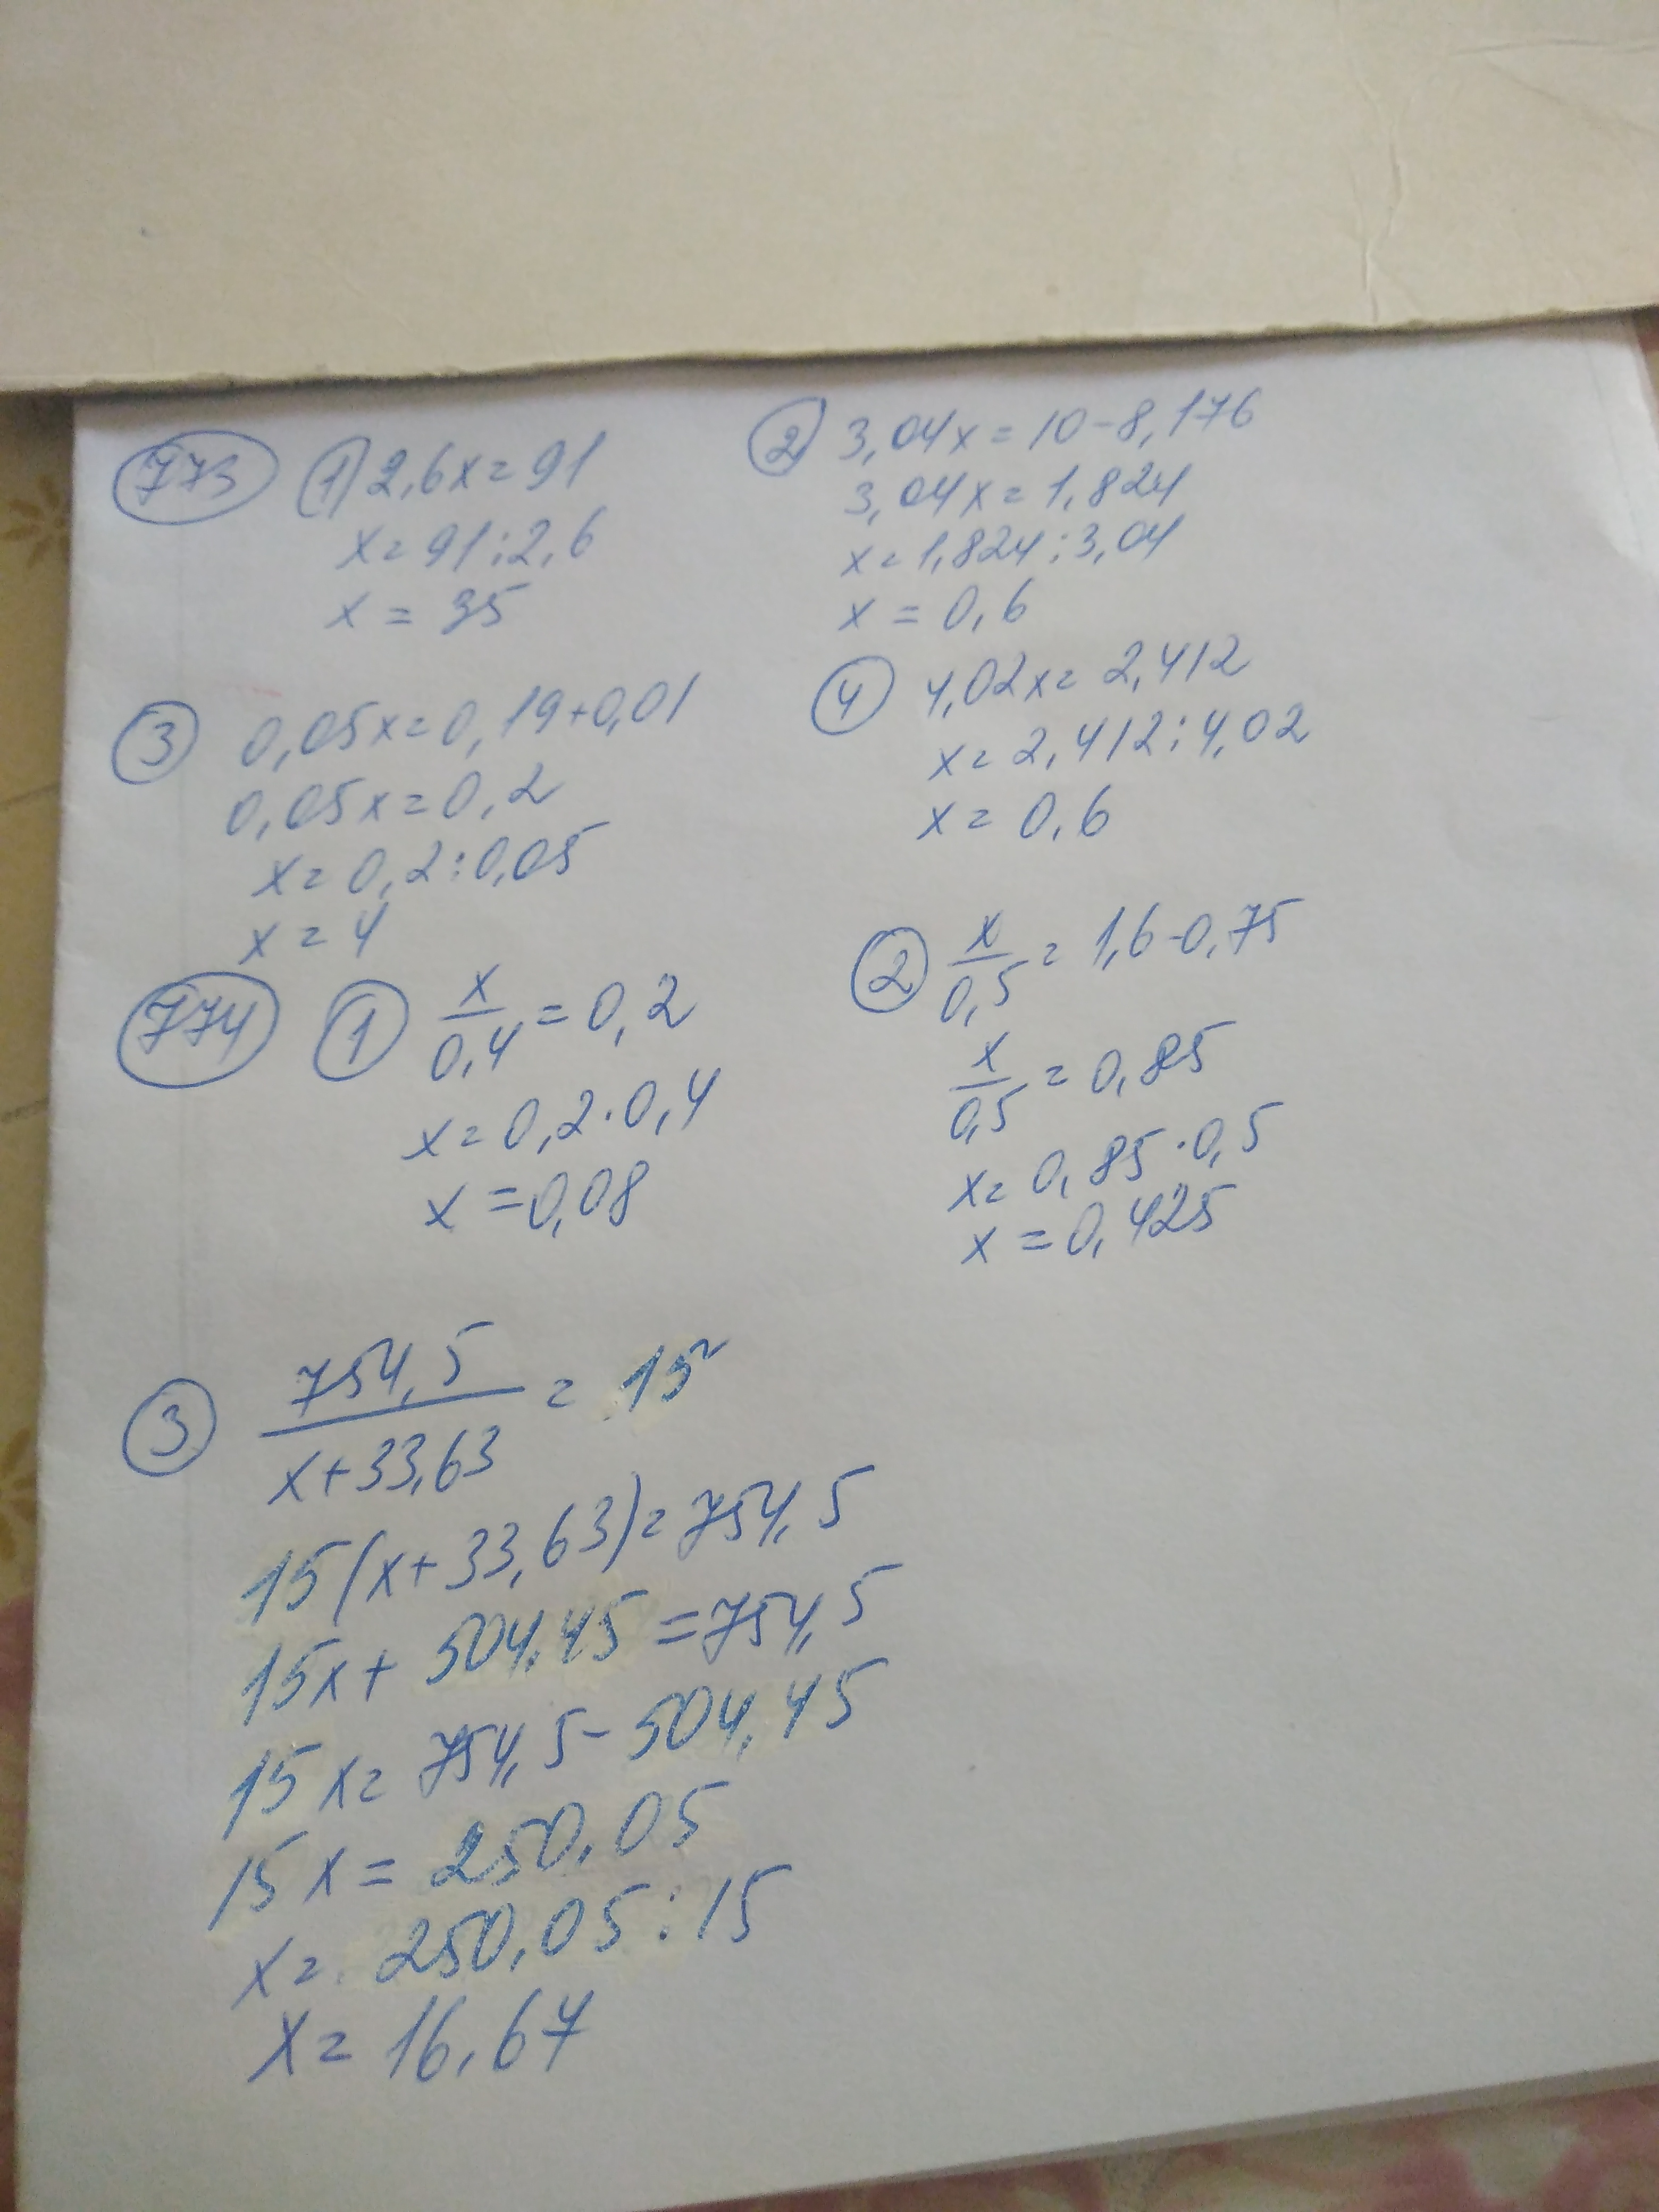 773 ① 2,6x=91
x=91:2,6
x=35
② 3,04x=10-8,176
3,04x=1,824
x=1,824:3,04
x=0,6
③ 0,05x=0,19+0,01
0,05x=0,2
x=0,2:0,05
x=4
④ 4,02x=2,412
x=2,412:4,02
x=0,6
774 ① x/0,4=0,2
x=0,2·0,4
x=0,08
② x/0,5=1,6-0,75
x/0,5=0,85
x=0,85·0,5
x=0,425
③ 754,5/(x+33,63)=15
15(x+33,63)=754,5
15x+504,45=754,5
15x=754,5-504,45
15x=250,05
x=250,05:15
x=16,67